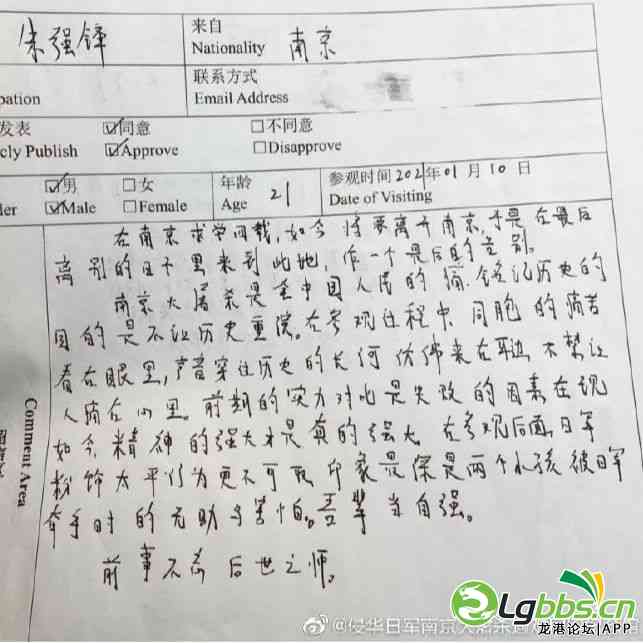 朱强锋
来自
Nationality 南京
联系方式
Email Address
pation
发表 ☑同意 □不同意
cly Publish ☑Approve □Disapprove
☑男 □女 年龄 21 参观时间 2021年01月10日
der ☑Male □Female Age Date of Visiting
在南京求学四载,如今将要离开南京,于是在最后
离别的日子里来到此地,作一个最后的告别。
南京大屠杀是全中国人民的痛,铭记历史的
目的是不让历史重演。在参观过程中,同胞的痛苦
看在眼里,声音穿过历史的长河仿佛来在耳边,不禁让
人痛在心里。前期的实力对比是失败的因素在现
如今,精神的强大才是真的强大。在参观后面,日军
粉饰太平行为更不可取,印象最深是两个小孩被日军
牵手时的无助与害怕。吾辈当自强。
前事不忘后世之师。
Comment Area
@侵华日军南京大屠杀遇
Lgbbs.cn
龙港论坛|APP